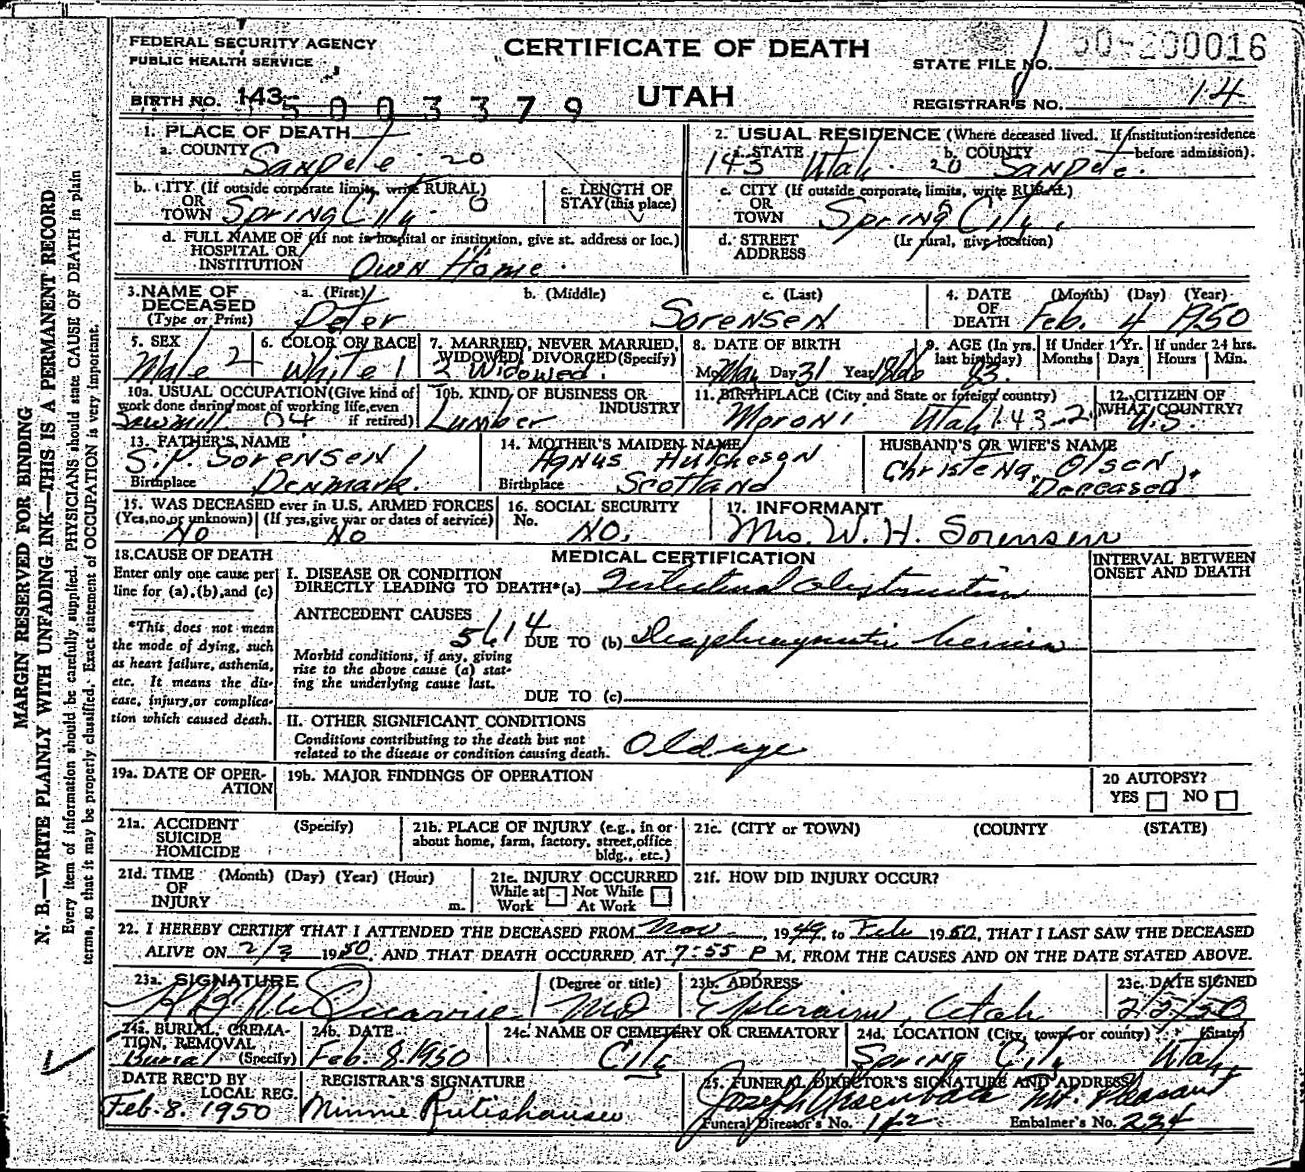 FEDERAL SECURITY AGENCY
PUBLIC HEALTH SERVICE
CERTIFICATE OF DEATH
STATE FILE NO. 50-200016
BIRTH NO. 143 5003379
UTAH
REGISTRAR'S NO. 14
1. PLACE OF DEATH
a. COUNTY Sanpete 20
2. USUAL RESIDENCE (Where deceased lived. If institution:residence before admission).
a. STATE 143 Utah. 20 b. COUNTY Sanpete.
b. CITY (If outside corporate limits, write RURAL) OR TOWN Spring City. 0
c. LENGTH OF STAY (this place)
c. CITY (If outside corporate limits, write RURAL) OR TOWN Spring City,
d. FULL NAME OF (If not in hospital or institution, give st. address or loc.) HOSPITAL OR INSTITUTION Own Home.
d. STREET ADDRESS (If rural, give location)
3. NAME OF DECEASED (Type or Print)
a. (First) Peter
b. (Middle)
c. (Last) Sorensen
4. DATE OF DEATH (Month) (Day) (Year) Feb. 4 1950
5. SEX Male 2
6. COLOR OR RACE White 1
7. MARRIED, NEVER MARRIED, WIDOWED, DIVORCED (Specify) 2 Widowed.
8. DATE OF BIRTH Mo. May Day 31 Year
9. AGE (In yrs. last birthday) 83.
If Under 1 Yr. Months Days
If under 24 hrs. Hours Min.
10a. USUAL OCCUPATION (Give kind of work done during most of working life, even if retired) Sawmill
10b. KIND OF BUSINESS OR INDUSTRY Lumber
11. BIRTHPLACE (City and State or foreign country) Moroni Utah 143-2
12. CITIZEN OF WHAT COUNTRY? U.S.
13. FATHER'S NAME S.P. Sorensen
Birthplace Denmark.
14. MOTHER'S MAIDEN NAME Agnus Hutcheson
Birthplace Scotland
HUSBAND'S OR WIFE'S NAME Christena Olsen
"Deceased"
15. WAS DECEASED ever in U.S. ARMED FORCES
(Yes, no, or unknown) No (If yes, give war or dates of service) No
16. SOCIAL SECURITY No. No.
17. INFORMANT Mrs. W. H. Sorensen
18. CAUSE OF DEATH
Enter only one cause per line for (a), (b), and (c)
*This does not mean the mode of dying, such as heart failure, asthenia, etc. It means the disease, injury, or complication which caused death.
MEDICAL CERTIFICATION
INTERVAL BETWEEN ONSET AND DEATH
I. DISEASE OR CONDITION DIRECTLY LEADING TO DEATH* (a) Intestinal obstruction
ANTECEDENT CAUSES
5614 DUE TO (b) Diaphragmatic hernia
Morbid conditions, if any, giving rise to the above cause (a) stating the underlying cause last.
DUE TO (c)
II. OTHER SIGNIFICANT CONDITIONS
Conditions contributing to the death but not related to the disease or condition causing death. Old age
19a. DATE OF OPERATION
19b. MAJOR FINDINGS OF OPERATION
20 AUTOPSY?
YES NO
21a. ACCIDENT SUICIDE HOMICIDE (Specify)
21b. PLACE OF INJURY (e.g., in or about home, farm, factory, street, office bldg., etc.)
21c. (CITY or TOWN) (COUNTY) (STATE)
21d. TIME OF INJURY (Month) (Day) (Year) (Hour) m.
21e. INJURY OCCURRED
While at Work Not While At Work
21f. HOW DID INJURY OCCUR?
22. I HEREBY CERTIFY THAT I ATTENDED THE DECEASED FROM Nov. 1949, to Feb 1950, THAT I LAST SAW THE DECEASED
ALIVE ON 2/3 1950, AND THAT DEATH OCCURRED AT 7:55 P M. FROM THE CAUSES AND ON THE DATE STATED ABOVE.
23a. SIGNATURE
(Degree or title) MD
23b. ADDRESS Ephraim, Utah
23c. DATE SIGNED 2/5/50
24a. BURIAL, CREMATION, REMOVAL (Specify) Burial
24b. DATE Feb. 8. 1950
24c. NAME OF CEMETERY OR CREMATORY City
24d. LOCATION (City, town, or county) (State) Spring City Utah.
DATE REC'D BY LOCAL REG. Feb. 8. 1950
REGISTRAR'S SIGNATURE Minnie
25. FUNERAL DIRECTOR'S SIGNATURE AND ADDRESS Joseph Ursenbach Mt. Pleasant
Funeral Director's No. 142 Embalmer's No. 234
MARGIN RESERVED FOR BINDING
N. B.—WRITE PLAINLY WITH UNFADING INK—THIS IS A PERMANENT RECORD
Every item of information should be carefully supplied. PHYSICIANS should state CAUSE OF DEATH in plain
terms, so that it may be properly classified. Exact statement of OCCUPATION is very important.